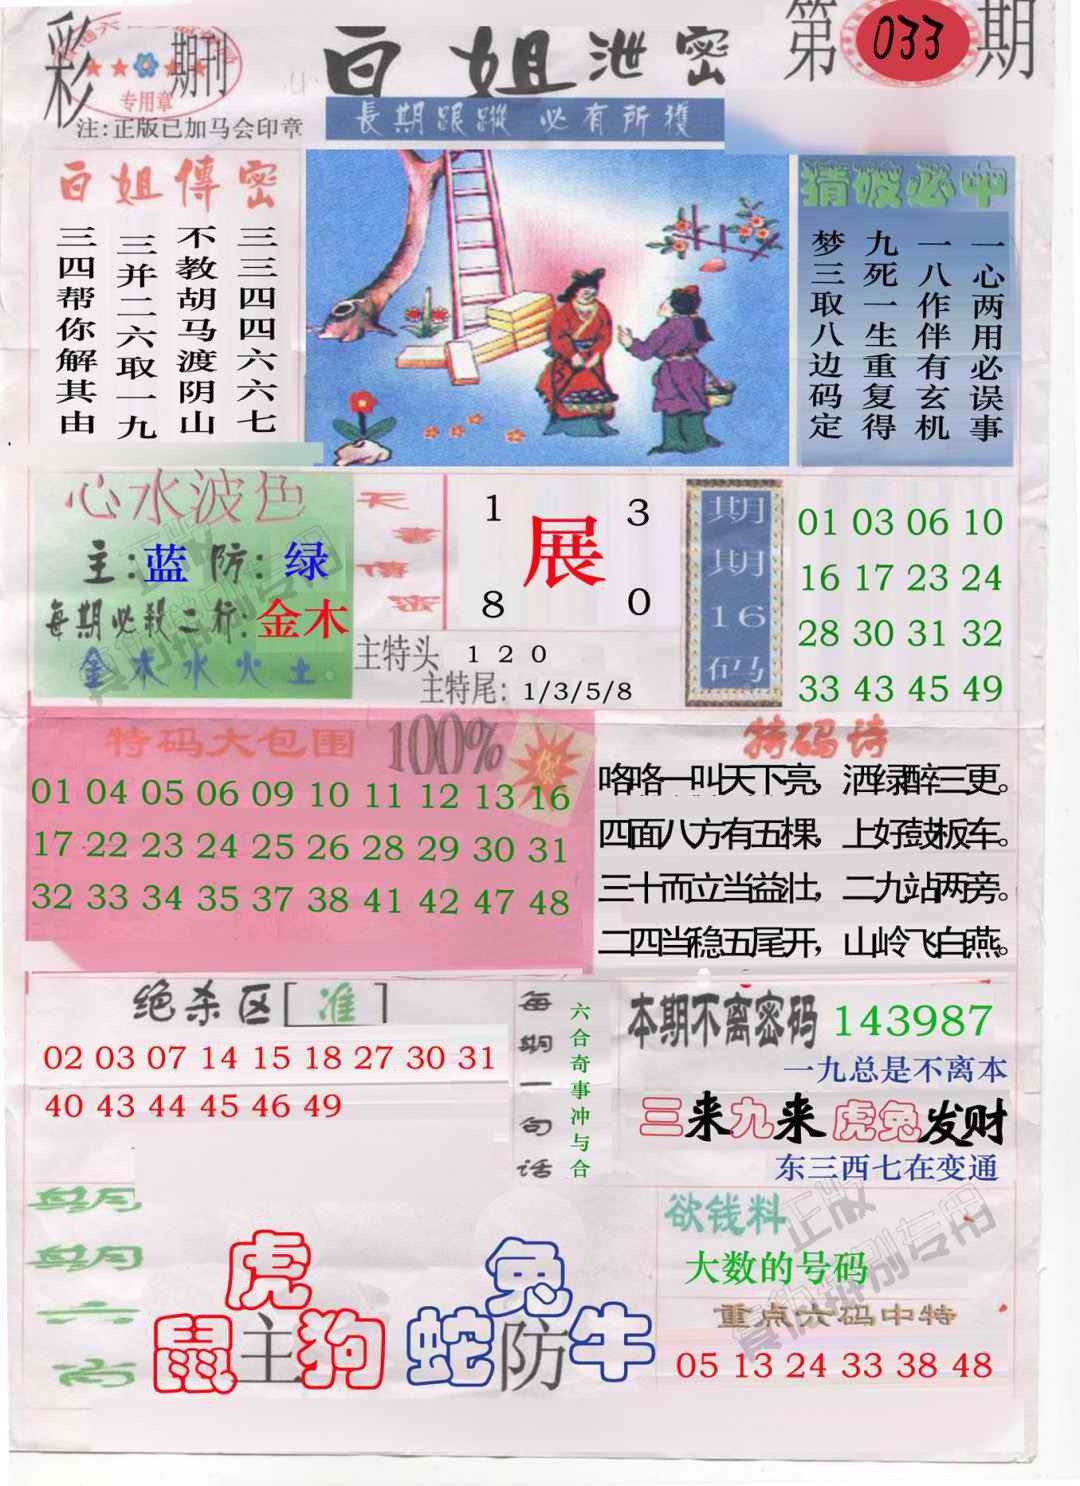 彩 期刊
专用章
注:正版已加马会印章
白姐泄密
第033期
長期跟蹤 必有所獲
白姐傳密
三三四四六六七
不教胡马渡阴山
三并二六取一九
三四帮你解其由
猜破必中
一心两用必误事
一八作伴有玄机
九死一生重复得
梦三取八边码定
心水波色
主:蓝 防:绿
每期必殺二行:金木
金木水火土
天書傳密
1 3
展
8 0
主特头 1 2 0
主特尾: 1/3/5/8
期期16码
01 03 06 10
16 17 23 24
28 30 31 32
33 43 45 49
特码大包围 100%
01 04 05 06 09 10 11 12 13 16
17 22 23 24 25 26 28 29 30 31
32 33 34 35 37 38 41 42 47 48
特码诗
咯咯一叫天下亮，洒绿醉三更。
四面八方有五棵，上好鼓板车。
三十而立当益壮，二九站两旁。
二四当稳五尾开，山岭飞白燕。
绝杀区[准]
02 03 07 14 15 18 27 30 31
40 43 44 45 46 49
每期一句话
六合奇事冲与合
本期不离密码 143987
一九总是不离本
三来九来 虎兔发财
东三西七在变通
期期六肖
虎
鼠主狗
兔
蛇防牛
欲钱料
大数的号码
重点六码中特
05 13 24 33 38 48